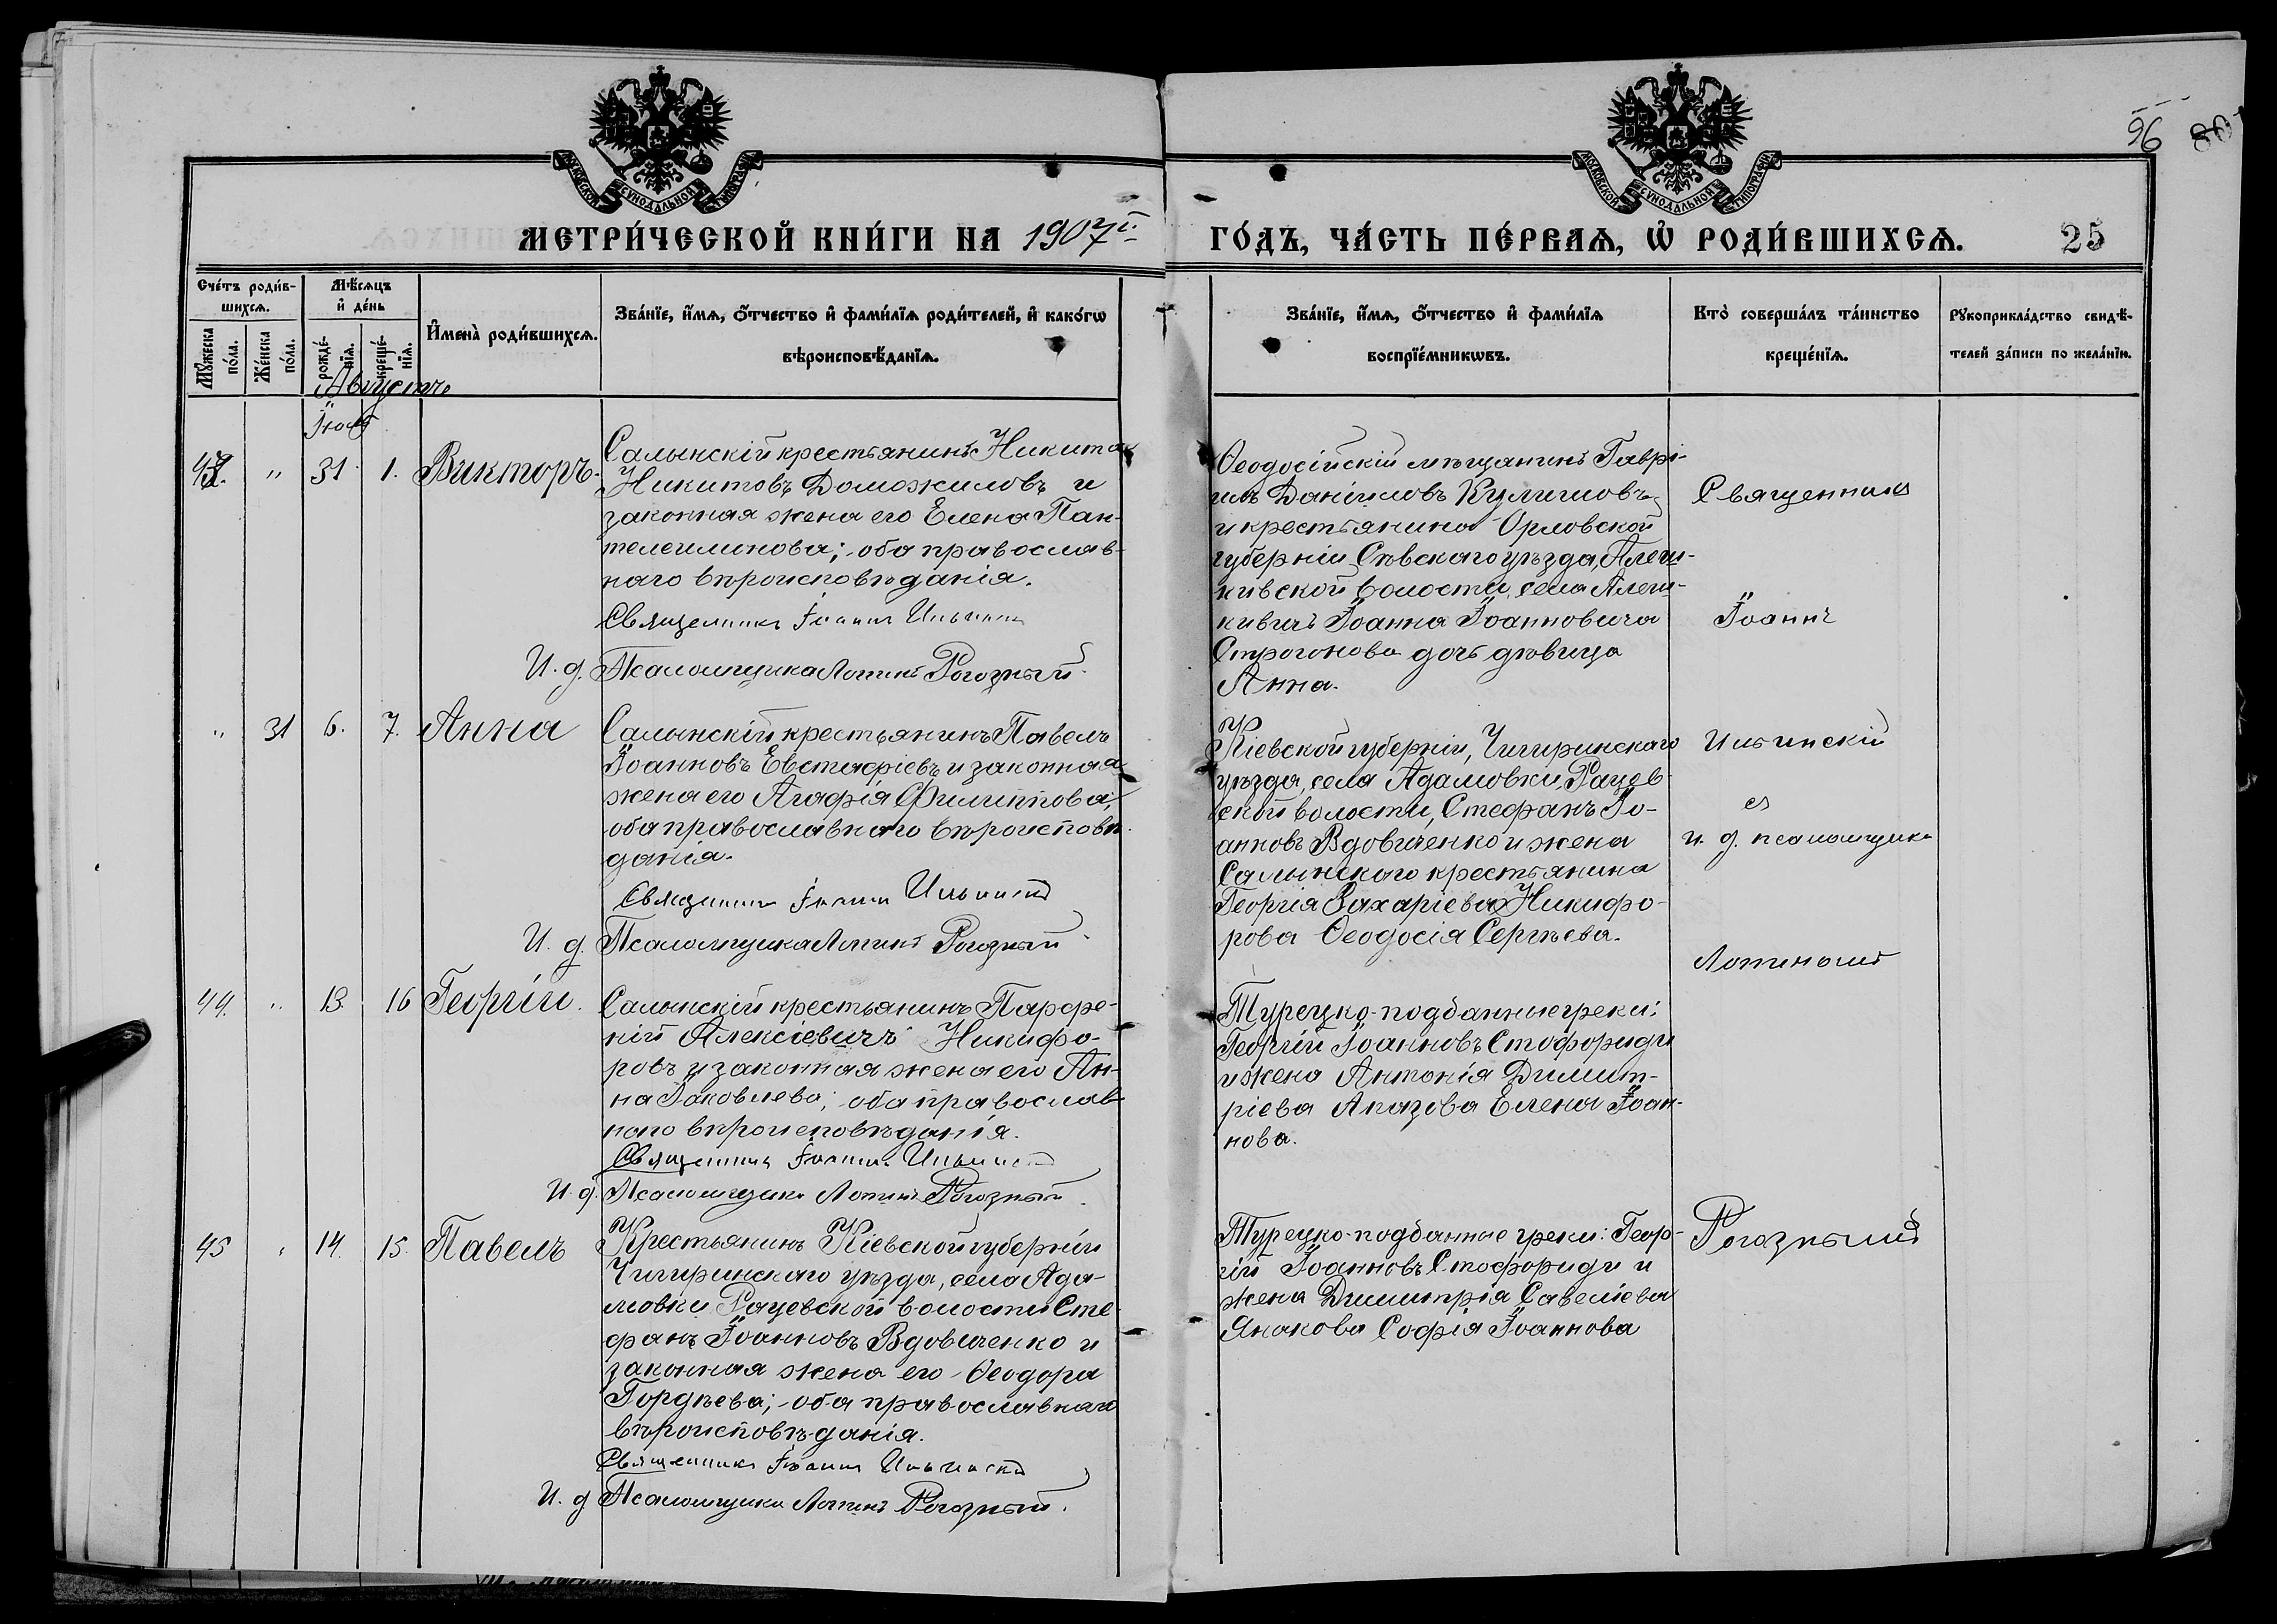 96 80
МОСКОВСКОЙ СѴНОДАЛЬНОЙ ТИПОГРАФІИ
МОСКОВСКОЙ СѴНОДАЛЬНОЙ ТИПОГРАФІИ
МЕТРИ́ЧЕСКОЙ КНИ́ГИ НА 1907й
ГО́ДЪ, ЧА́СТЬ ПЕ́РВАѦ, Ѡ҆ РОДИ́ВШИХСѦ. 25
Сче́тъ роди́в-
шихсѧ.
Мꙋ́жеска по́ла.
Же́нска по́ла.
Мѣ́сѧцъ
и҆ де́нь
рожде́-
нїѧ.
креще́-
нїѧ.
И҆мена̀ роди́вшихсѧ.
Зва́нїе, и҆́мѧ, ѻ҆́тчество и҆ фами́лїѧ роди́телей, и҆ како́гѡ
вѣроисповѣ́данїѧ.
Зва́нїе, и҆́мѧ, ѻ҆́тчество и҆ фами́лїѧ
воспрїе́мникѡвъ.
Кто̀ соверша́лъ та́инство
креще́нїѧ.
Рꙋкоприкла́дство свидѣ́-
телей за́писи по жела́нїю.
Августъ
Іюль
43. " 31 1. Викторъ.
Салынскій крестьянинъ Никита
Никитовъ Доможиловъ и
законная жена его Елена Пан-
телеимонова; оба православ-
наго вѣроисповѣданія.
Священникъ Іоаннъ Ильинскій
И. д. Псаломщика Логинъ Рогозный
Ѳеодосійскій мѣщанинъ Гаврі-
илъ Даніиловъ Кулишовъ
и крестьянина Орловской
губерніи Сѣвскаго уѣзда, Алеш-
кивской волости, села Алеш-
кивичъ Іоанна Іоанновича
Строгонова дочь дѣвица
Анна.
" 31 6. 7. Анна
Салынскій крестьянинъ Павелъ
Іоанновъ Евстафіевъ и законная
жена его Агафія Филиппова,
оба православнаго вѣроисповѣ-
данія.
Священникъ Іоаннъ Ильинскій
И. д. Псаломщика Логинъ Рогозный
Кіевской губерніи, Чигиринскаго
уѣзда, села Адамовки, Рацев-
ской волости, Стефанъ Іо-
анновъ Вдовиченко и жена
Салынскаго крестьянина
Георгія Захаріева Никифо-
рова Ѳеодосія Сергѣева.
44. " 13. 16 Георгій.
Салынскій крестьянинъ Парфе-
ній Алексіевичъ Никифо-
ровъ и законная жена его Ан-
на Іаковлева; оба православ-
наго вѣроисповѣданія.
Священникъ Іоаннъ Ильинскій
И. д. Псаломщика Логинъ Рогозный
Турецко-подданные греки:
Георгій Іоанновъ Стофориди
и жена Антонія Димит-
ріева Апазова Елена Іоан-
нова.
45 " 14. 15. Павелъ
Крестьянинъ Кіевской губерніи
Чигиринскаго уѣзда, села Ада-
мовки Рацевской волости Сте-
фанъ Іоанновъ Вдовиченко и
законная жена его Ѳеодора
Гордѣева; оба православнаго
вѣроисповѣданія.
Священникъ Іоаннъ Ильинскій
И. д Псаломщика Логинъ Рогозный.
Турецко-подданные греки: Геор-
гій Іоанновъ Стофориди и
жена Димитрія Савеліева
Янакова Софія Іоаннова
Священникъ
Іоаннъ
Ильинскій
съ
и. д. псаломщика
Логиномъ
Рогознымъ